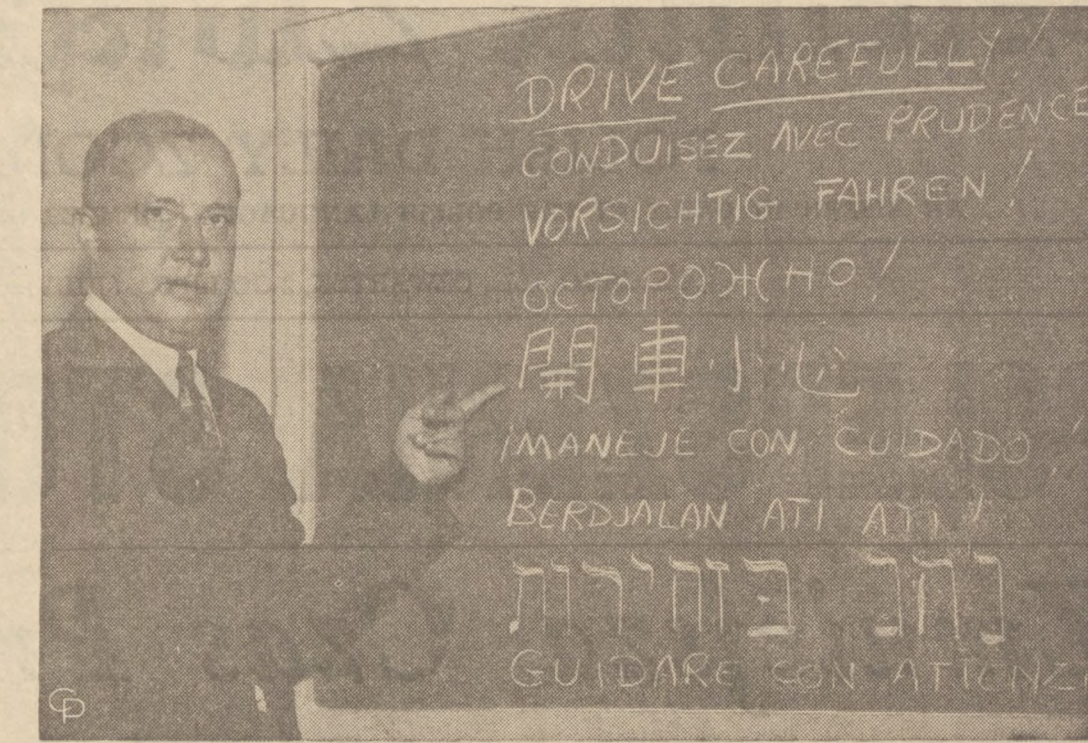 DRIVE CAREFULLY!
CONDUISEZ AVEC PRUDENCE
VORSICHTIG FAHREN!
ОСТОРОЖНО!
開車小心
¡MANEJE CON CUIDADO!
BERDJALAN ATI ATI!
נהג בזהירות
GUIDARE CON ATTENZ
CP